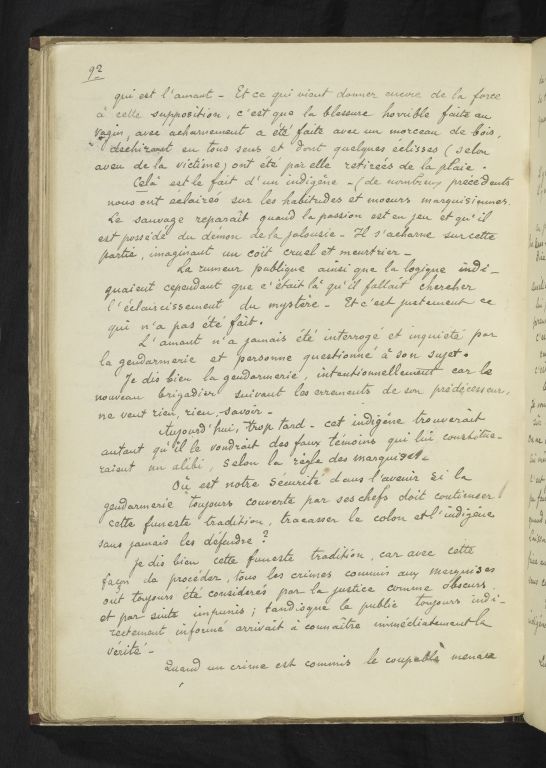 92
qui est l'amant - Et ce qui vient donner encore de la force
à cette supposition, c'est que la blessure horrible faite au
vagin, avec acharnement a été faite avec un morceau de bois,
déchirant en tous sens et dont quelques éclisses (selon
aveu de la victime) ont été par elle retirées de la plaie.
Celà est le fait d'un indigène - (de nombreux précédents
nous ont éclairés sur les habitudes et moeurs marquisiennes.
Le sauvage reparaît quand la passion est en jeu et qu'il
est possédé du démon de la jalousie - Il s'acharne sur cette
partie, imaginant un coït cruel et meurtrier -
La rumeur publique ainsi que la logique indi-
quaient cependant que c'était là qu'il fallait chercher
l'éclaircissement du mystère - Et c'est justement ce
qui n'a pas été fait.
L'amant n'a jamais été interrogé et inquiété par
la gendarmerie et personne questionné à son sujet.
Je dis bien la gendarmerie, intentionnellement car le
nouveau brigadier suivant les errements de son prédécesseur,
ne veut rien, rien, savoir -
Aujourd'hui, trop tard - cet indigène trouverait
autant qu'il le voudrait des faux témoins qui lui constitue-
raient un alibi, selon la règle des marquises.
Où est notre sécurité dans l'avenir si la
gendarmerie toujours couverte par ses chefs doit continuer
cette funeste tradition, tracasser le colon et l'indigène
sans jamais les défendre?
Je dis bien cette funeste tradition, car avec cette
façon de procéder, tous les crimes commis aux marquises
ont toujours été considérés par la justice comme obscurs
et par suite impunis; tandisque le public toujours indi-
rectement informé arrivait à connaître immédiatement la
vérité -
Quand un crime est commis le coupable menace